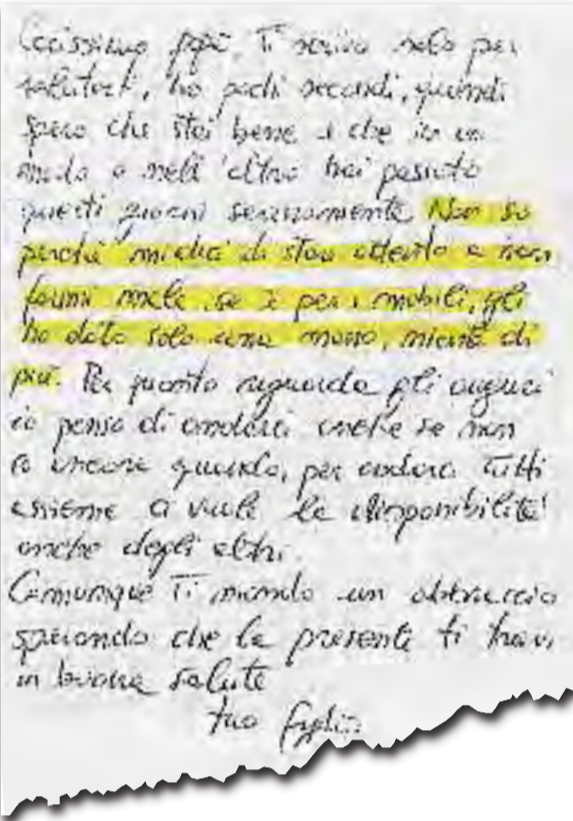 Carissimo papà, Ti scrivo solo per
salutarti, ho pochi secondi, quindi
spero che stai bene e che in un
modo o nell'altro hai passato
questi giorni serenamente. Non so
perché mi dici di stare attento a non
farmi male, se è per i mobili, gli
ho dato solo una mano, niente di
più. Per quanto riguarda gli auguri
io penso di andarci anche se non
so ancora quando, per andare tutti
assieme ci vuole la disponibilità
anche degli altri.
Comunque Ti mando un abbraccio
sperando che la presente ti trovi
in buona salute
tuo figlio